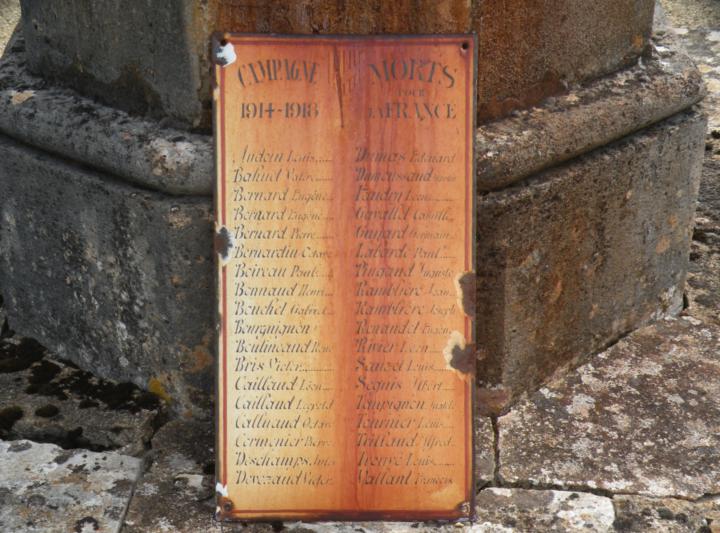 CAMPAGNE
1914-1918
MORTS
POUR
LA FRANCE
Audoin Louis
Bahuet
Bernard Eugène
Bernard Eugène
Bernard Pierre
Bernardin Octave
Boireau Paul
Bonnaud Henri
Bouchet Gabriel
Bourguignon
Boulineaud René
Bris Victor
Caillaud Léon
Caillaud Léopold
Callnaud Octave
Cermenier
Deschamps
Devezaud Victor
Dumas Edouard
Dumoussaud
Faudry Léon
Gavallet Camille
Guyard Germain
Labarde Paul
Pingaud Auguste
Ramblière Jean
Ramblière Joseph
Renaudet Eugène
Rivier Léon
Sauzet Louis
Seguis Albert
Tampignon
Tournier Louis
Trillaud Alfred
Louis
Vaillant François